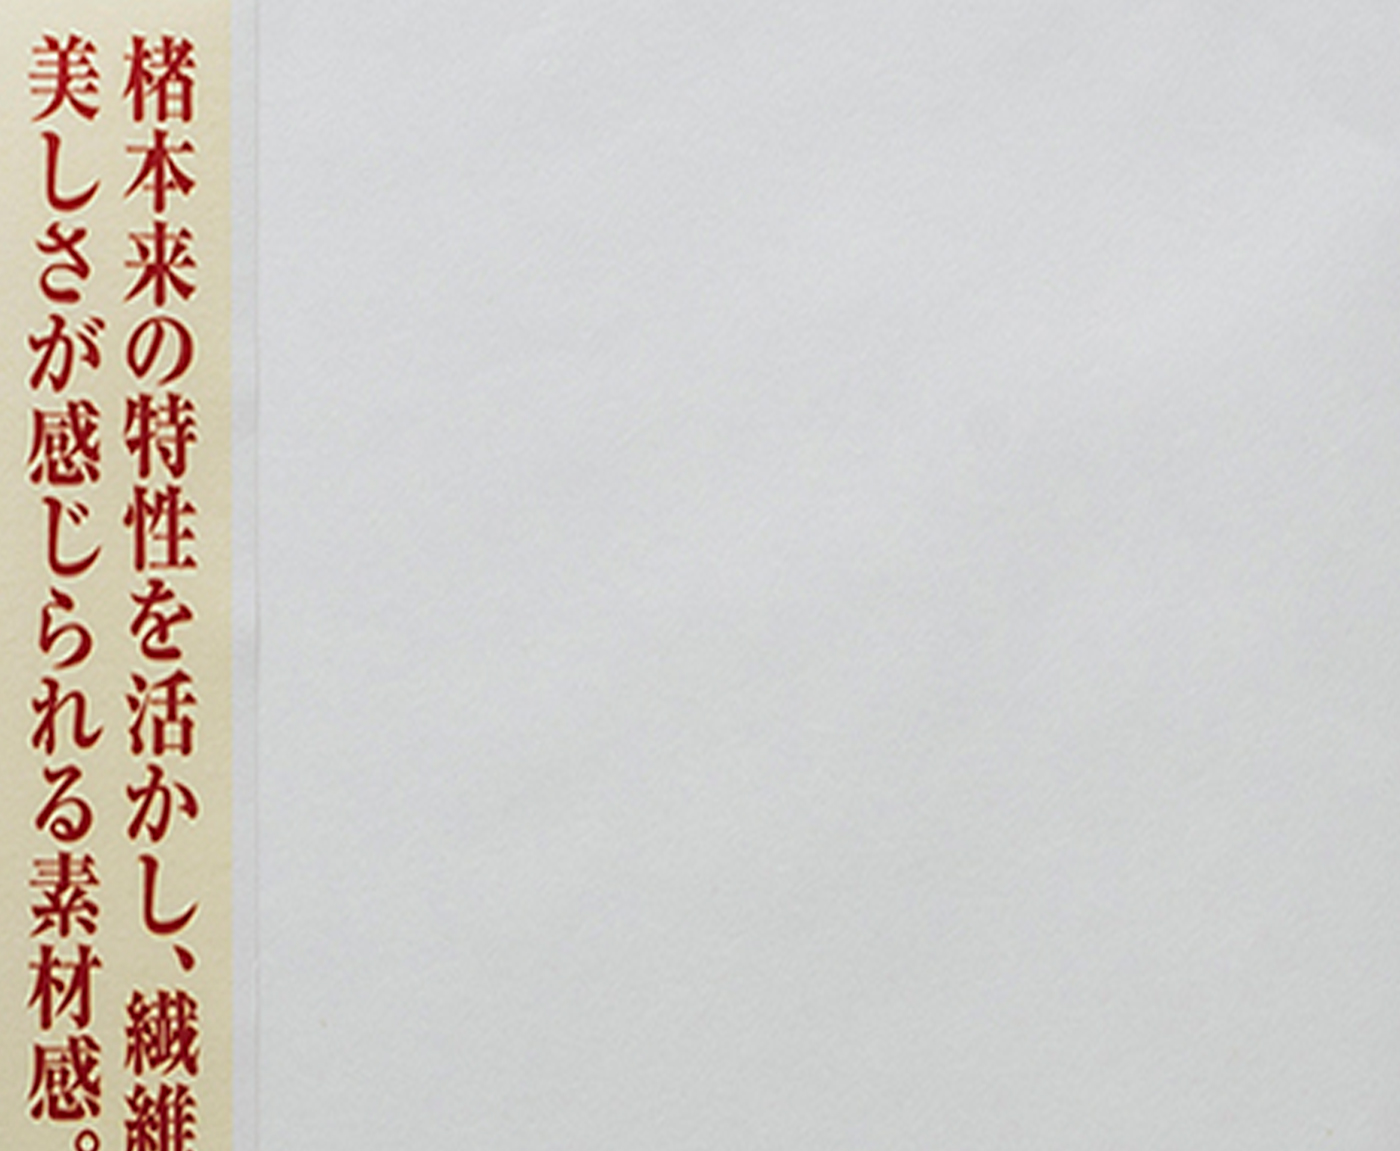 楮本来の特性を活かし、繊維
美しさが感じられる素材感。